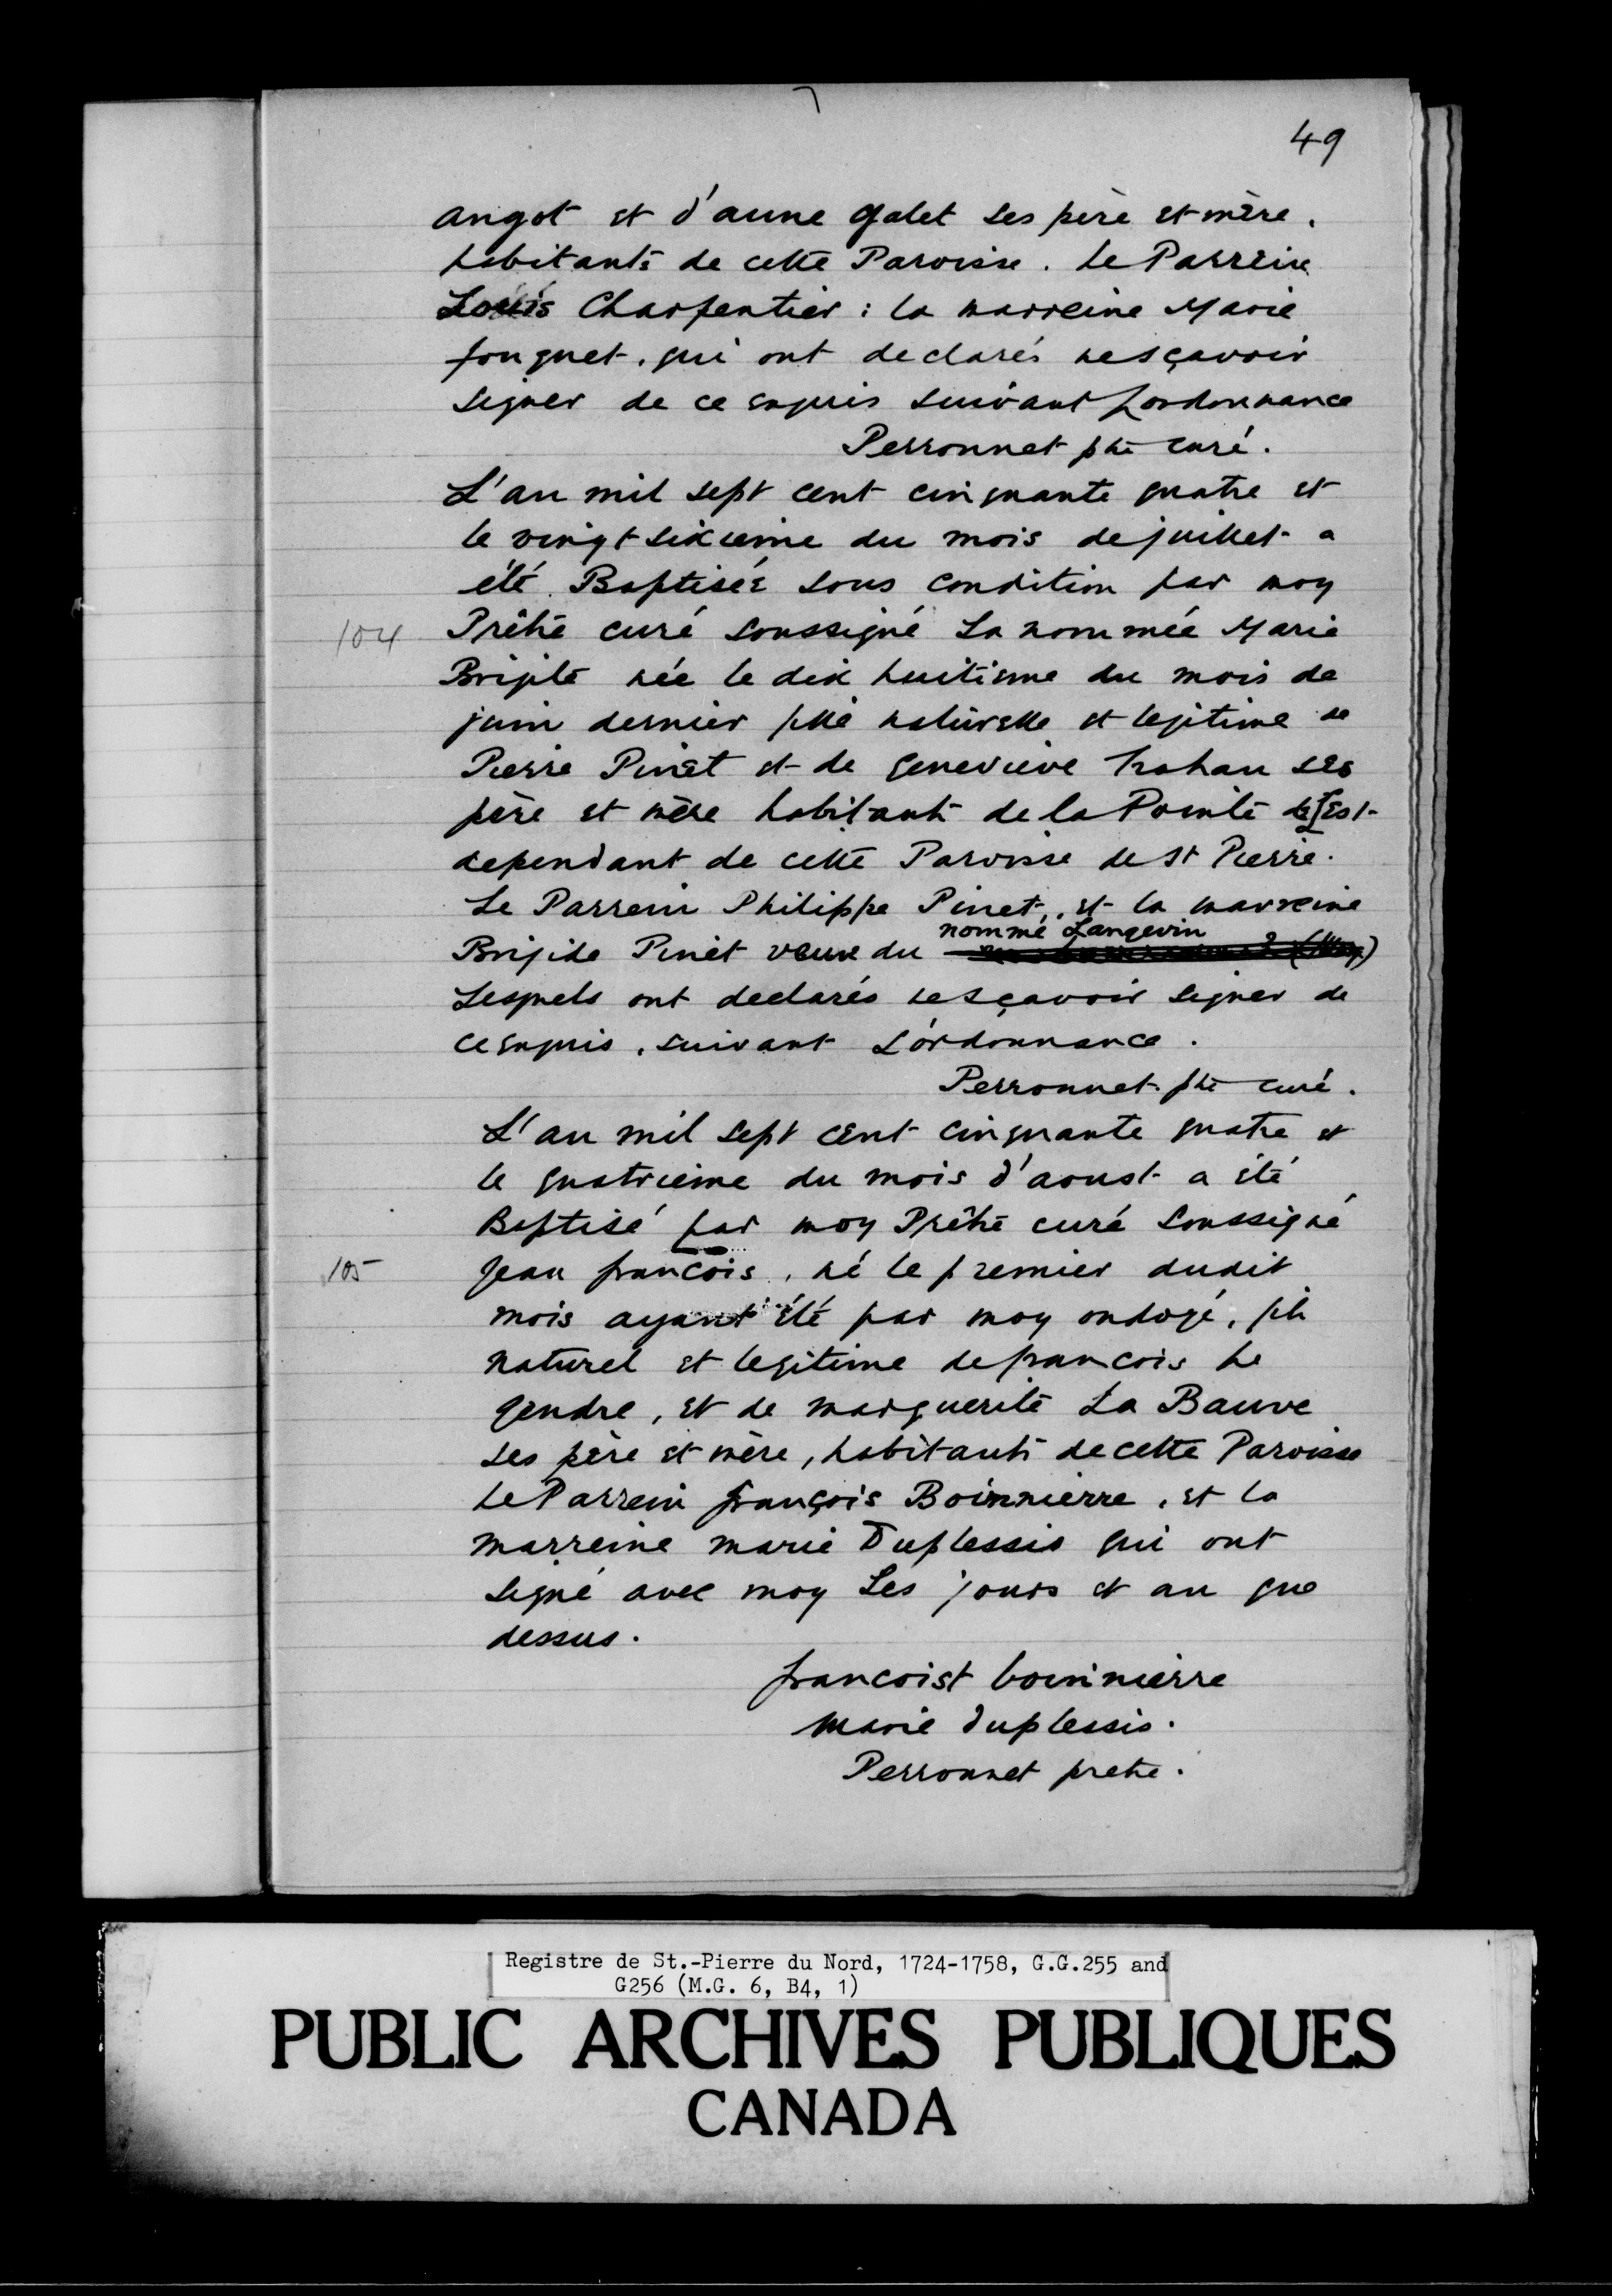 49
angot et d'anne Galet ses père et mère.
habitants de cette Paroisse. Le Parrein
Louis Charpentier : la marreine Marie
fouquet. qui ont declarés nesçavoir
signer de ce enquis suivant Lordonnance
Perronnet ptre curé.
L'an mil sept cent cinquante quatre et
le vingt sixieme du mois de juillet a
été Baptisée sous condition par moy
104 Prêtre curé soussigné La nommée Marie
Brigite née le dix huitieme du mois de
juin dernier fille naturelle et legitime de
Pierre Pinet et de genevieve trahan ses
père et mère habitants de la Pointe de l'Est
dependant de cette Paroisse de St Pierre.
Le Parrein Philippe Pinet, et la marreine
nommé Langevin
Brigide Pinet veuve du
Lesquels ont declarés nesçavoir signer de
ce enquis, suivant L'ordonnance.
Perronnet ptre curé.
L'an mil sept cent cinquante quatre et
le quatrieme du mois d'aoust a été
Baptisé par moy Prêtre curé soussigné
105 Jean francois, né le premier dudit
mois ayant été par moy ondoyé, fils
naturel et legitime de francois Le
gendre, et de marguerite La Bauve
ses père et mère, habitants de cette Paroisse
Le Parrein françois Boinnierre, et la
marreine marie Duplessis qui ont
signé avec moy Les jours et an que
dessus.
francoist boinnierre
marie duplessis.
Perronnet pretre.
Registre de St.-Pierre du Nord, 1724-1758, G.G.255 and
G256 (M.G. 6, B4, 1)
PUBLIC ARCHIVES PUBLIQUES
CANADA